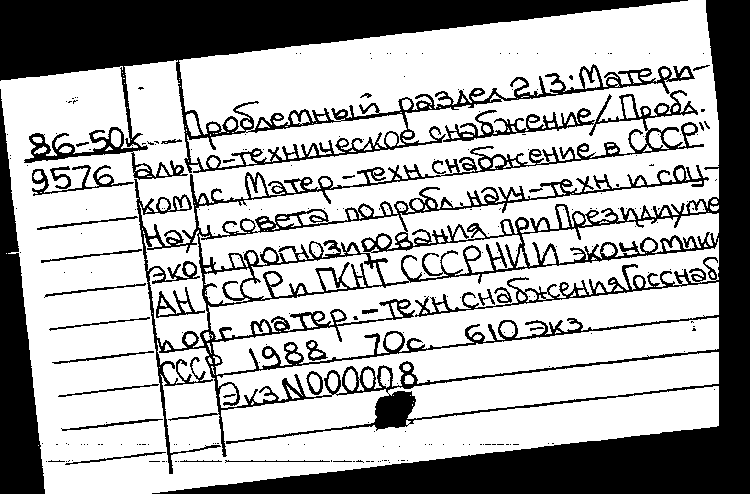 86-50к
9576
Проблемный раздел 2.13: Матери-
ально-техническое снабжение/. Пробл.
комис. „Матер.-техн. снабжение в СССР"
Науч. совета по пробл. науч.-техн. и соц.-
экон. прогнозирования при Президиуме
АН СССР и ГКНТ СССР, НИИ экономики
и орг. матер.-техн. снабжения Госснаба
СССР 1988. 70с. 610 экз.
Экз N000008.